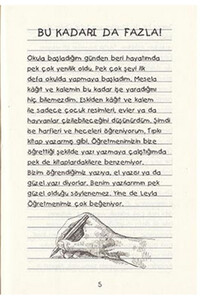 BU KADARI DA FAZLA!
Okula başladığım günden beri hayatımda
pek çok yenilik oldu. Pek çok şeyi ilk
defa okulda yapmaya başladım. Mesela
kâğıt ve kalemin bu kadar işe yaradığını
hiç bilmezdim. Eskiden kâğıt ve kalem
ile sadece çocuk resimleri, evler ya da
hayvanlar çizilebileceğini düşünürdüm. Şimdi
ise harfleri ve heceleri öğreniyorum. Tıpkı
kitap yazarmış gibi. Öğretmenimizin bize
öğrettiği şekilde yazı yazmaya çalıştığımda
pek de kitaplardakilere benzemiyor.
Bizim öğrendiğimiz yazıya, el yazısı ya da
güzel yazı diyorlar. Benim yazılarımın pek
güzel olduğu söylenemez. Yine de Leyla
Öğretmenimiz çok beğeniyor.
5